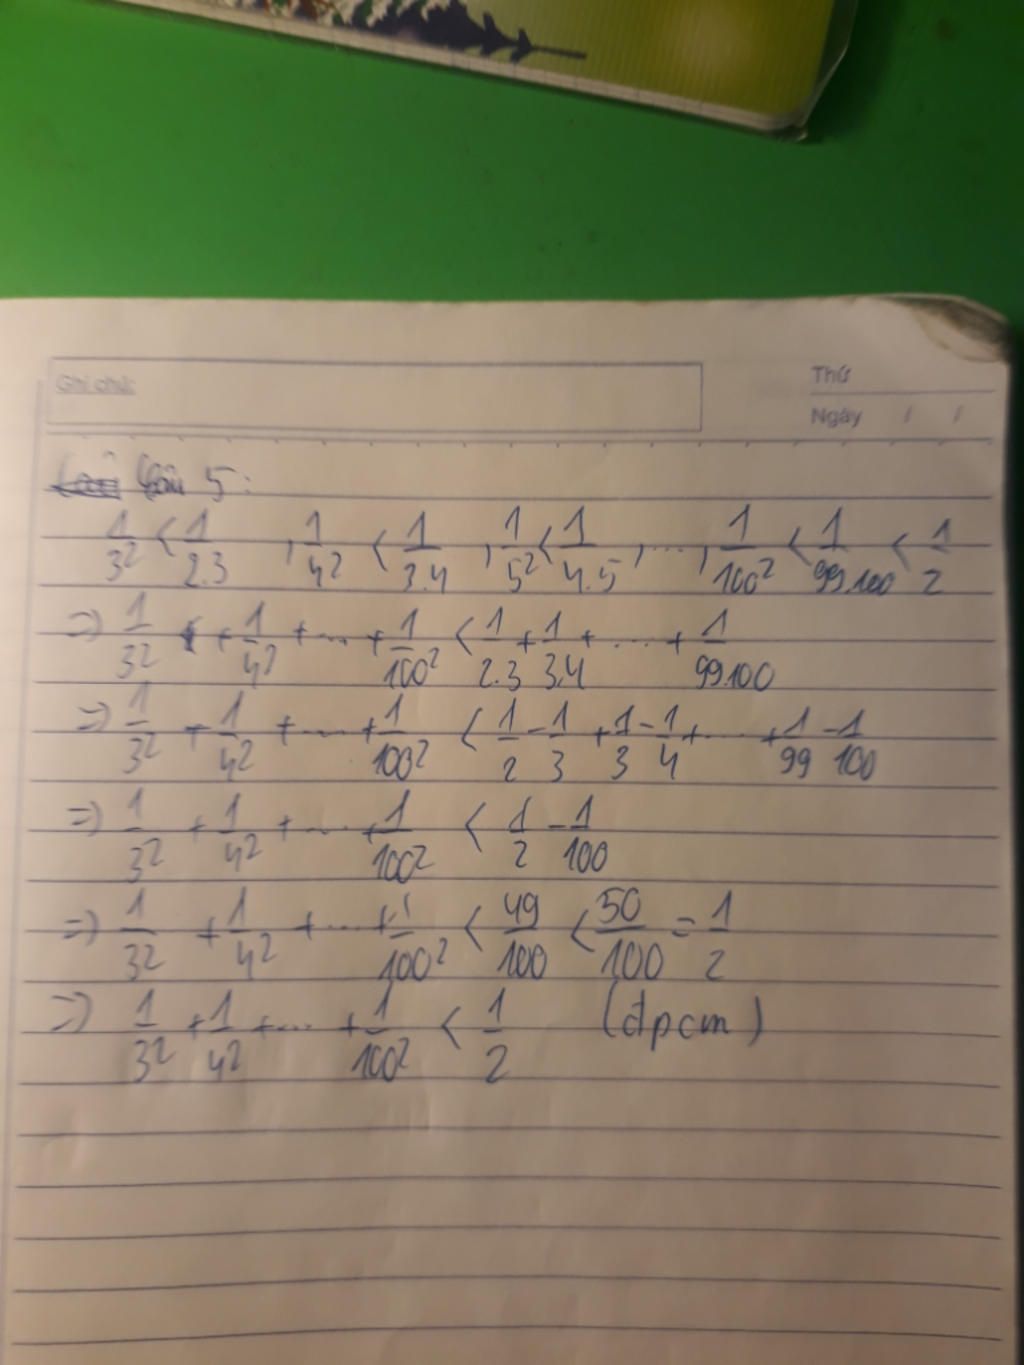 Ghi chú:
Thứ
Ngày / /
Câu 5:
1/3² < 1/2.3 , 1/4² < 1/3.4 , 1/5² < 1/4.5 , ... , 1/100² < 1/99.100 < 1/2
=> 1/3² + 1/4² + ... + 1/100² < 1/2.3 + 1/3.4 + ... + 1/99.100
=> 1/3² + 1/4² + ... + 1/100² < 1/2 - 1/3 + 1/3 - 1/4 + ... + 1/99 - 1/100
=> 1/3² + 1/4² + ... + 1/100² < 1/2 - 1/100
=> 1/3² + 1/4² + ... + 1/100² < 49/100 < 50/100 = 1/2
=> 1/3² + 1/4² + ... + 1/100² < 1/2 (đpcm)